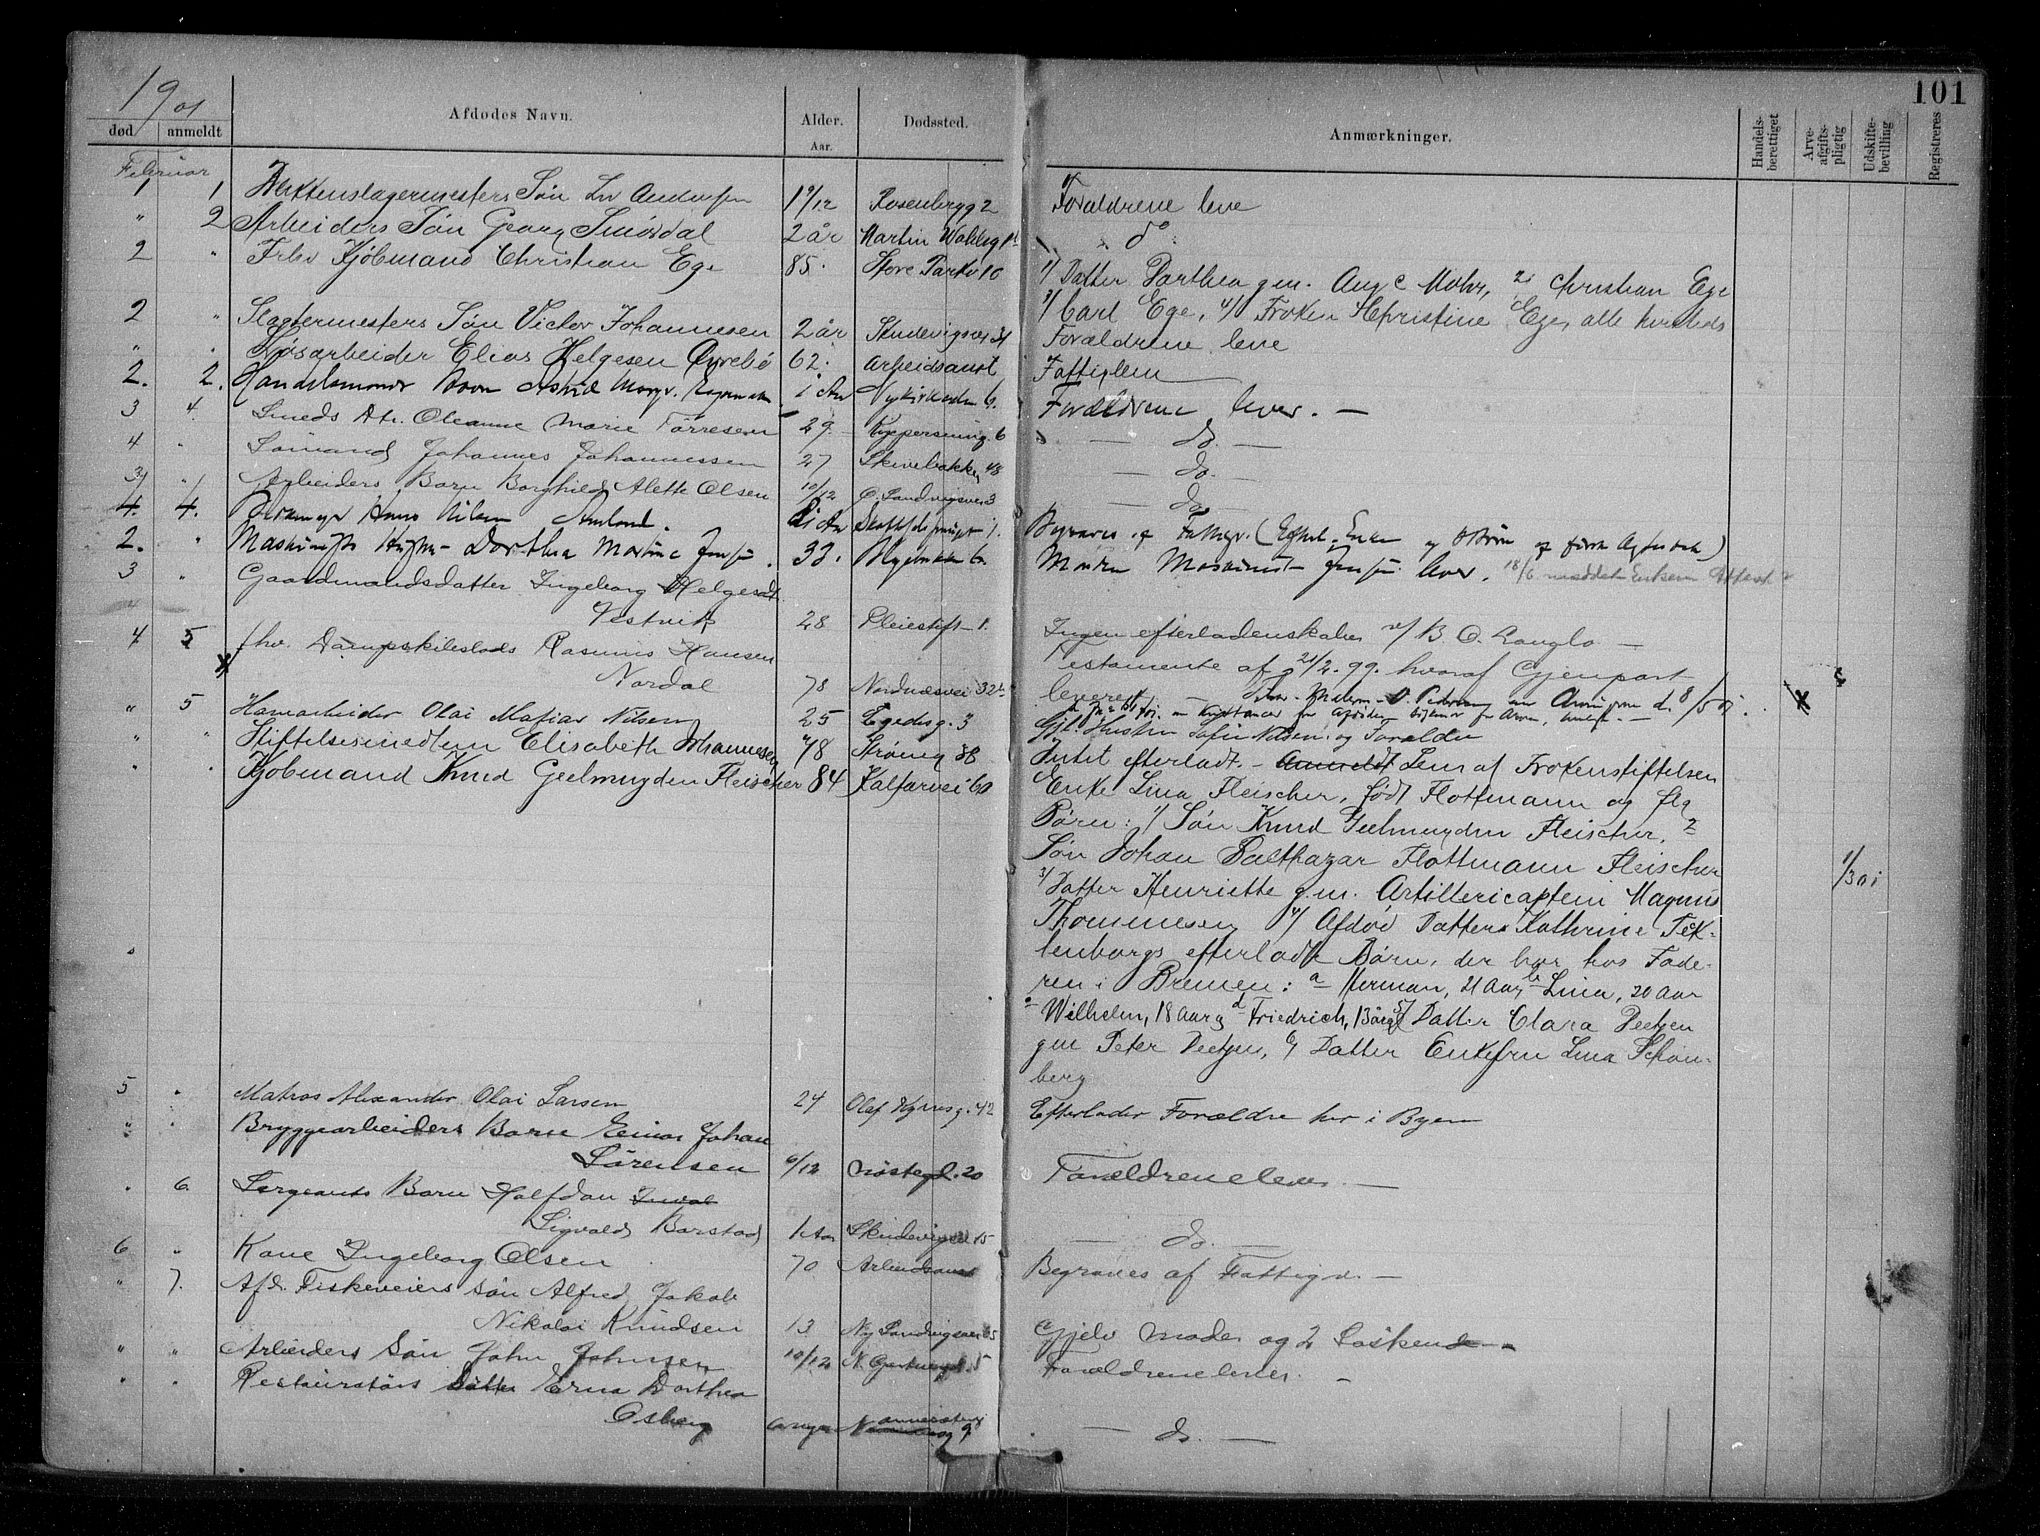 101
1901
død anmeldt Afdødes Navn. Alder. Aar. Dødssted. Anmærkninger. Handels-berettiget Arve-afgifts-pligtig Udskifte-bevilling Registreres
Februar
1 1 Søn 1 9/12 Rosenbergg 2 Forældrene leve
" 2 Arbeiders Søn Georg Smørdal 2 år Martin Wahlsg do
2 " Frhv Kjøbmand Christian Ege 85. Store Parkv 10
1/ Datter Dorthea gm. Aug C Mohr, 2/ Christian Ege
3/ Carl Ege, 4/ Frøken HChristine Ege, alle hersteds
2 " Slagtermesters Søn Victor Johannesen 2 år Skudevigsv Forældrene leve
" . Løsarbeider Elias Helgesen 62. Arbeidsanst Fattiglem
2. 2. Handelsmands Barn Astrid 1 Aar Nykirkealm 6. Forældrene lever. —
3 4. Smeds Dtr. Oleanne Marie Tørresen 29. 6 — do. —
4 . Sømand Johannes Johannessen 27 Skivebakken 48 — do. —
3 " Arbeiders Barn Borghild Alette Olsen 10/12 Ø. Sandvigsvei 3 — do —
4. 4. Hans Nilsen Begraves af Fattigv. (Efterl. Enke og
2. " Maskinists Hustru Dorthea Martine Jensen. 33. Manden Maskinist Jensen lever. 18/6
3 " Gaardmandsdatter Ingeborg Helgesdtr.
Vestvik 28 Pleiestift — 1. Ingen efterladenskaber v/ B. O. Langlo —
4 5 fhv. Dampskibslods Rasmus Hansen Testamente af 21/2. 99. hvoraf Gjenpart
x Nordal 78 Nordnæsvei 32 leveret x
" 5 Havnearbeider Olai Matias Nilsen 25 Egedsg. 3 Gjl. Hustru Sofie Nilsen og Forældre
" " Stiftelsesmedlem Elisabeth Johannesen 78 Strømg 38 Intet efterladt. — Anmeldt Lem af Frøkenstiftelsen
" . Kjøbmand Knud Geelmuyden Fleischer 84 Kalfarvei 60 Enke Lina Fleischer, født Flottmann og flg
Børn: 1/ Søn Knud Geelmuyden Fleischer, 2
Søn Johan Balthazar Flottmann Fleischer 1/301
3/ Datter Henriette g.m. Artillericaptein Magnus
Thommesen 4/ Afdød Datter Kathrine Tek-
lenborgs efterladte Børn, der bor hos Fade-
ren i Bremen: a Herman, 21 Aar, b Lina, 20 Aar
c Wilhelm, 18 Aar, d Friedrich, 13 år 5/ Datter Clara Deetjen
gm Peter Deetjen, 6/ Datter Enkefru Lina Schøn-
berg
5 . Matros Alexander Olai Larsen 24 Olaf Kyrresg. 42 Efterlader Forældre her i Byen
" . Bryggearbeiders Barn Einar Johan
Sørensen 6/12 Nøstegd. 20 Forældrene lever. —
. 6. Sergeants Barn Halfdan
Sigvald Barstad 1 Aar Skudevigsvei 15 — do. —
6 " Kone Ingeborg Olsen 70 Arbeidsanst Begraves af Fattigv. —
" 7. Afd. Fiskeveiers Søn Alfred Jakob
Nikolai Knudsen 13 Ny Sandvigsvei 65 Gjelv Moder og 2 Søskende —
" " Arbeiders Søn John Johnsen 10/12 5 Forældrene lever. —
" . Restauratørs Datter Erna Dorthea
Osberg 9 — do. —